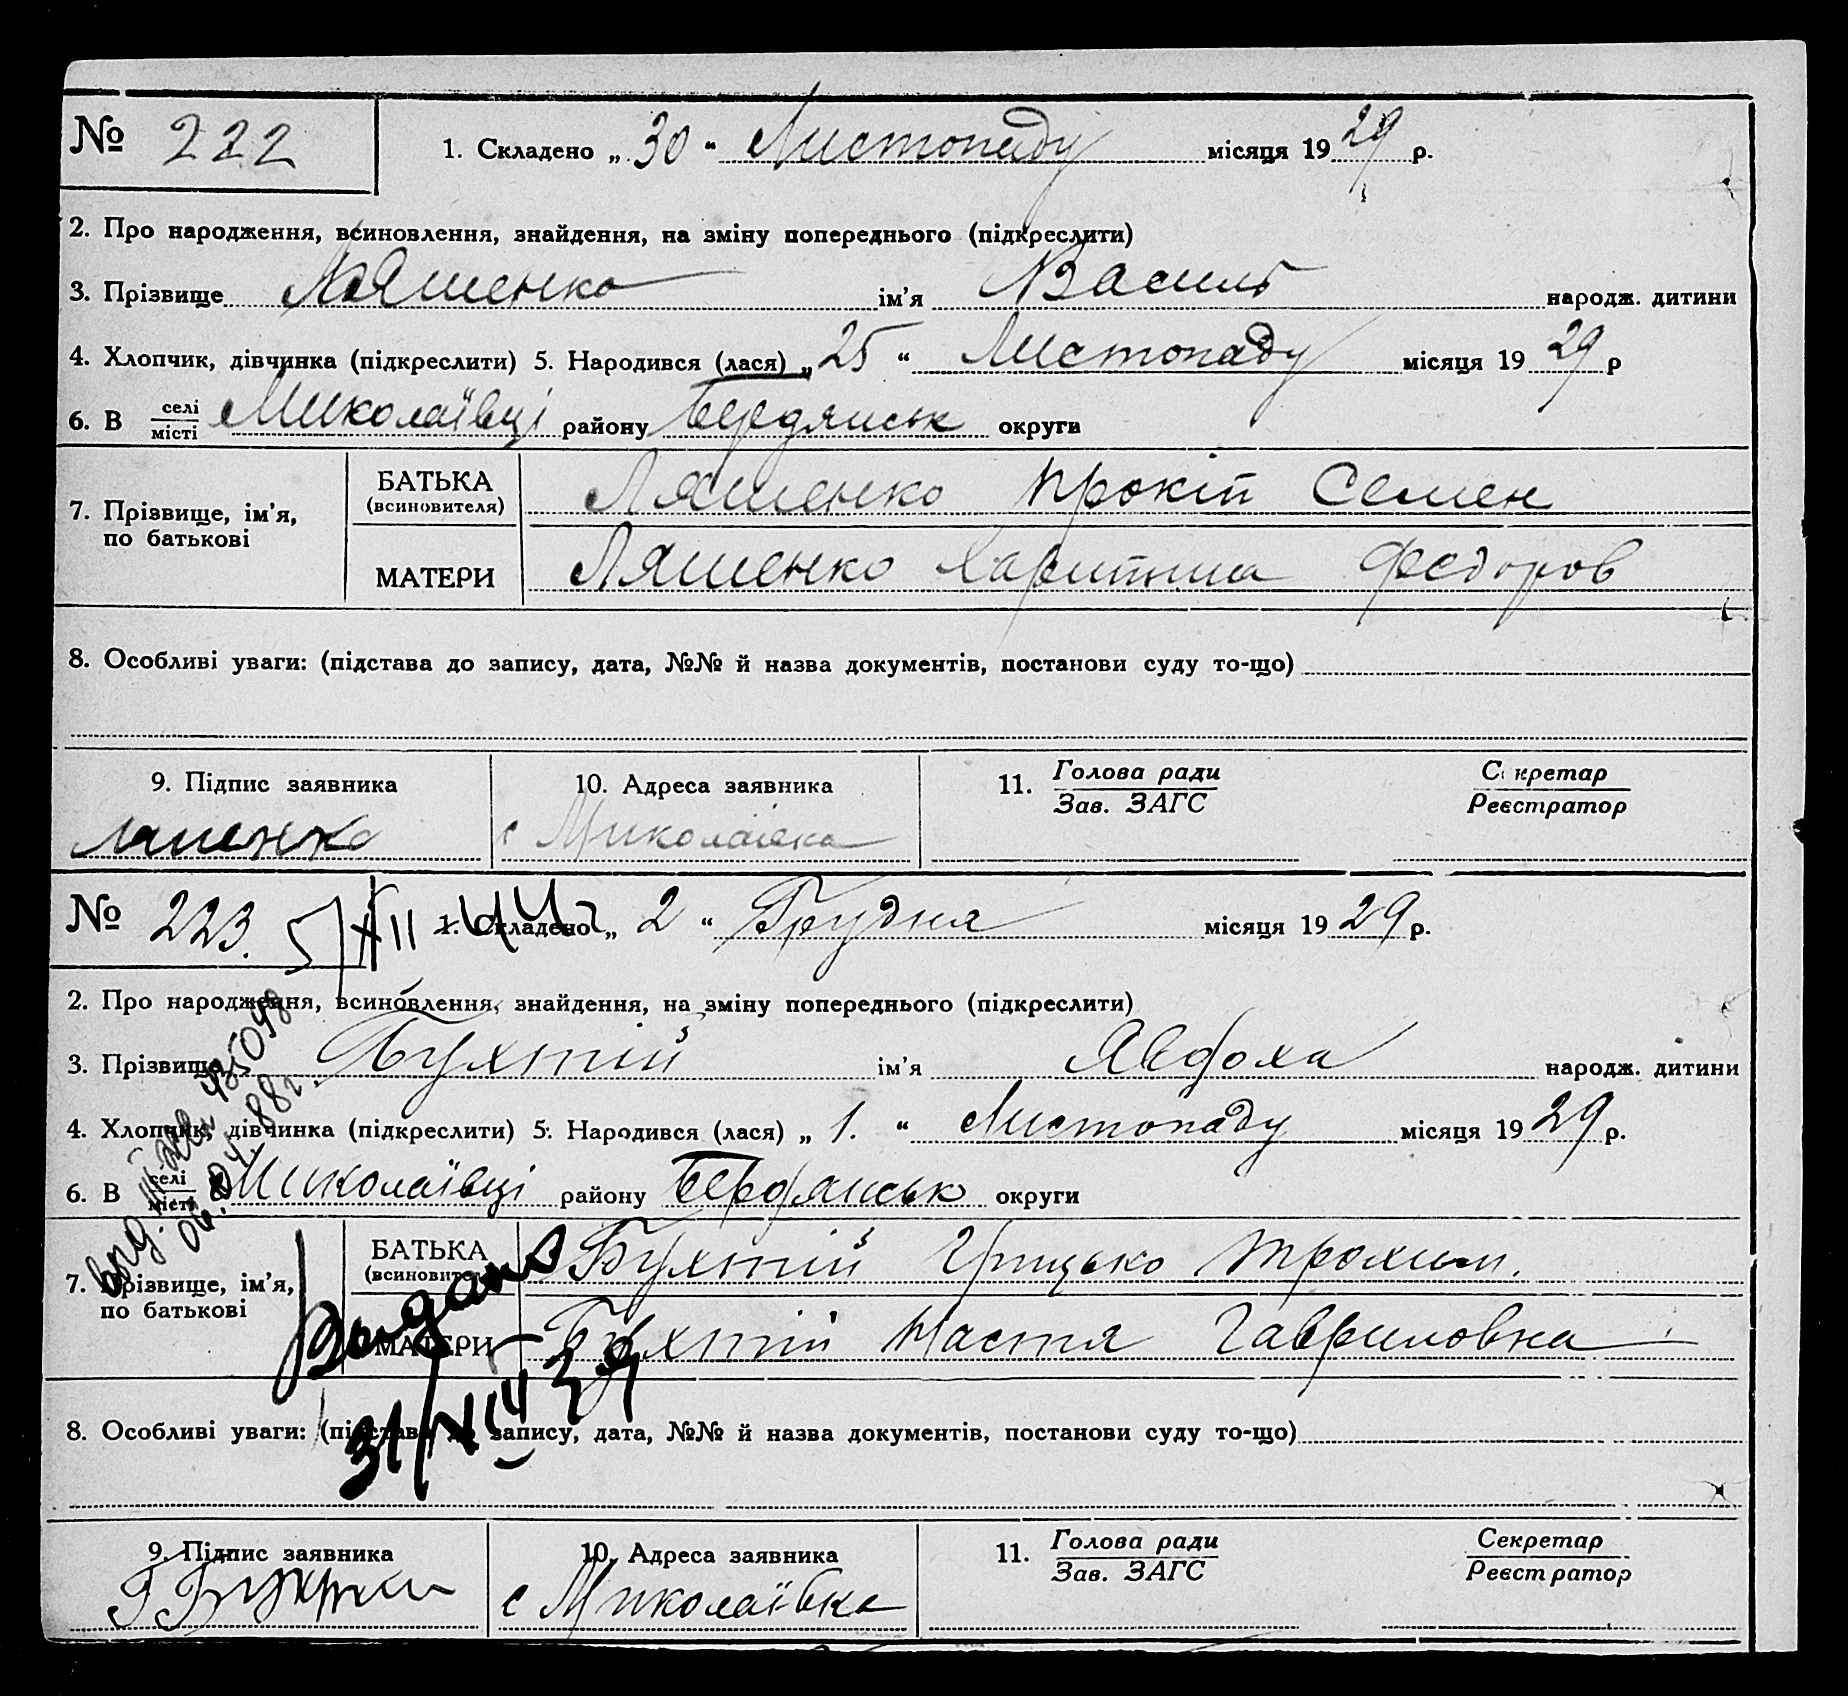 № 222 1. Складено „ 30 “ Листопаду місяця 1929 р.
2. Про народження, всиновлення, знайдення, на зміну попереднього (підкреслити)
3. Прізвище Ляшенко ім’я Василь народж. дитини
4. Хлопчик, дівчинка (підкреслити) 5. Народився (лася) „ 25 “ Листопаду місяця 1929 р
6. В селі місті Миколаївці району Бердянськ округи
7. Прізвище, ім’я, по батькові
БАТЬКА (всиновителя) Ляшенко Прокіп Семен
МАТЕРИ Ляшенко Харитина Федоров
8. Особливі уваги: (підстава до запису, дата, №№ й назва документів, постанови суду то-що)
9. Підпис заявника 10. Адреса заявника 11. Голова ради Секретар
Зав. ЗАГС Реєстратор
с Миколаївка
№ 223. 5/XII 44 г 1. Складено „ 2 “ Грудня місяця 1929 р.
2. Про народження, всиновлення, знайдення, на зміну попереднього (підкреслити)
3. Прізвище Бухтій ім’я Явдоха народж. дитини
4. Хлопчик, дівчинка (підкреслити) 5. Народився (лася) „ 1. “ Листопаду місяця 1929 р.
6. В селі місті Миколаївці району Бердянськ округи
06.04.88г.
7. Прізвище, ім’я, по батькові
БАТЬКА (всиновителя) Бухтій Грицько Трохим.
МАТЕРИ Бухтій Настя Гавриловна
8. Особливі уваги: (підстава до запису, дата, №№ й назва документів, постанови суду то-що)
9. Підпис заявника 10. Адреса заявника 11. Голова ради Секретар
Зав. ЗАГС Реєстратор
с Миколаївка